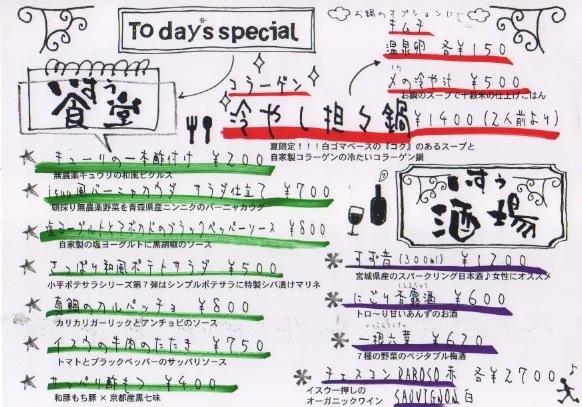 To day's special
お鍋のオプションに!
キムチ
温泉卵 各¥150
〆の冷や汁 ¥500
お鍋のスープで十穀米の仕上げごはん
いすぅ
食堂
コラーゲン
冷やし担々鍋 ¥1400 (2人前より)
夏限定!!!白ゴマベースの『コク』のあるスープと
自家製コラーゲンの冷たいコラーゲン鍋
キューリの一本酢付け ¥200
無農薬キュウリの和風ピクルス
isuu風バーニャカウダ サラダ仕立て ¥700
朝採り無農薬野菜を青森県産ニンニクのバーニャカウダ
塩ヨーグルトとアボカドのブラックペッパーソース ¥800
自家製の塩ヨーグルトに黒胡椒のソース
さっぱり和風ポテトサラダ ¥500
小平ポテサラシリーズ第7弾はシンプルポテサラに特製シバ漬けマリネ
真鯛のカルパッチョ ¥800
カリカリガーリックとアンチョビのソース
イスウの牛肉のたたき ¥750
トマトとブラックペッパーのサッパリソース
サッパリ酢もつ ¥400
和豚もち豚×京都産黒七味
いすぅ
酒場
すず音 (300ml) ¥1700
宮城県産のスパークリング日本酒♪女性にオススメ
にごり杏露酒 ¥600
トロ〜り甘いあんずのお酒
¥670
7種の野菜のベジタブル梅酒
チェスコン 赤 各¥2700
イスウ一押しの
オーガニックワイン SAUVIGNON 白